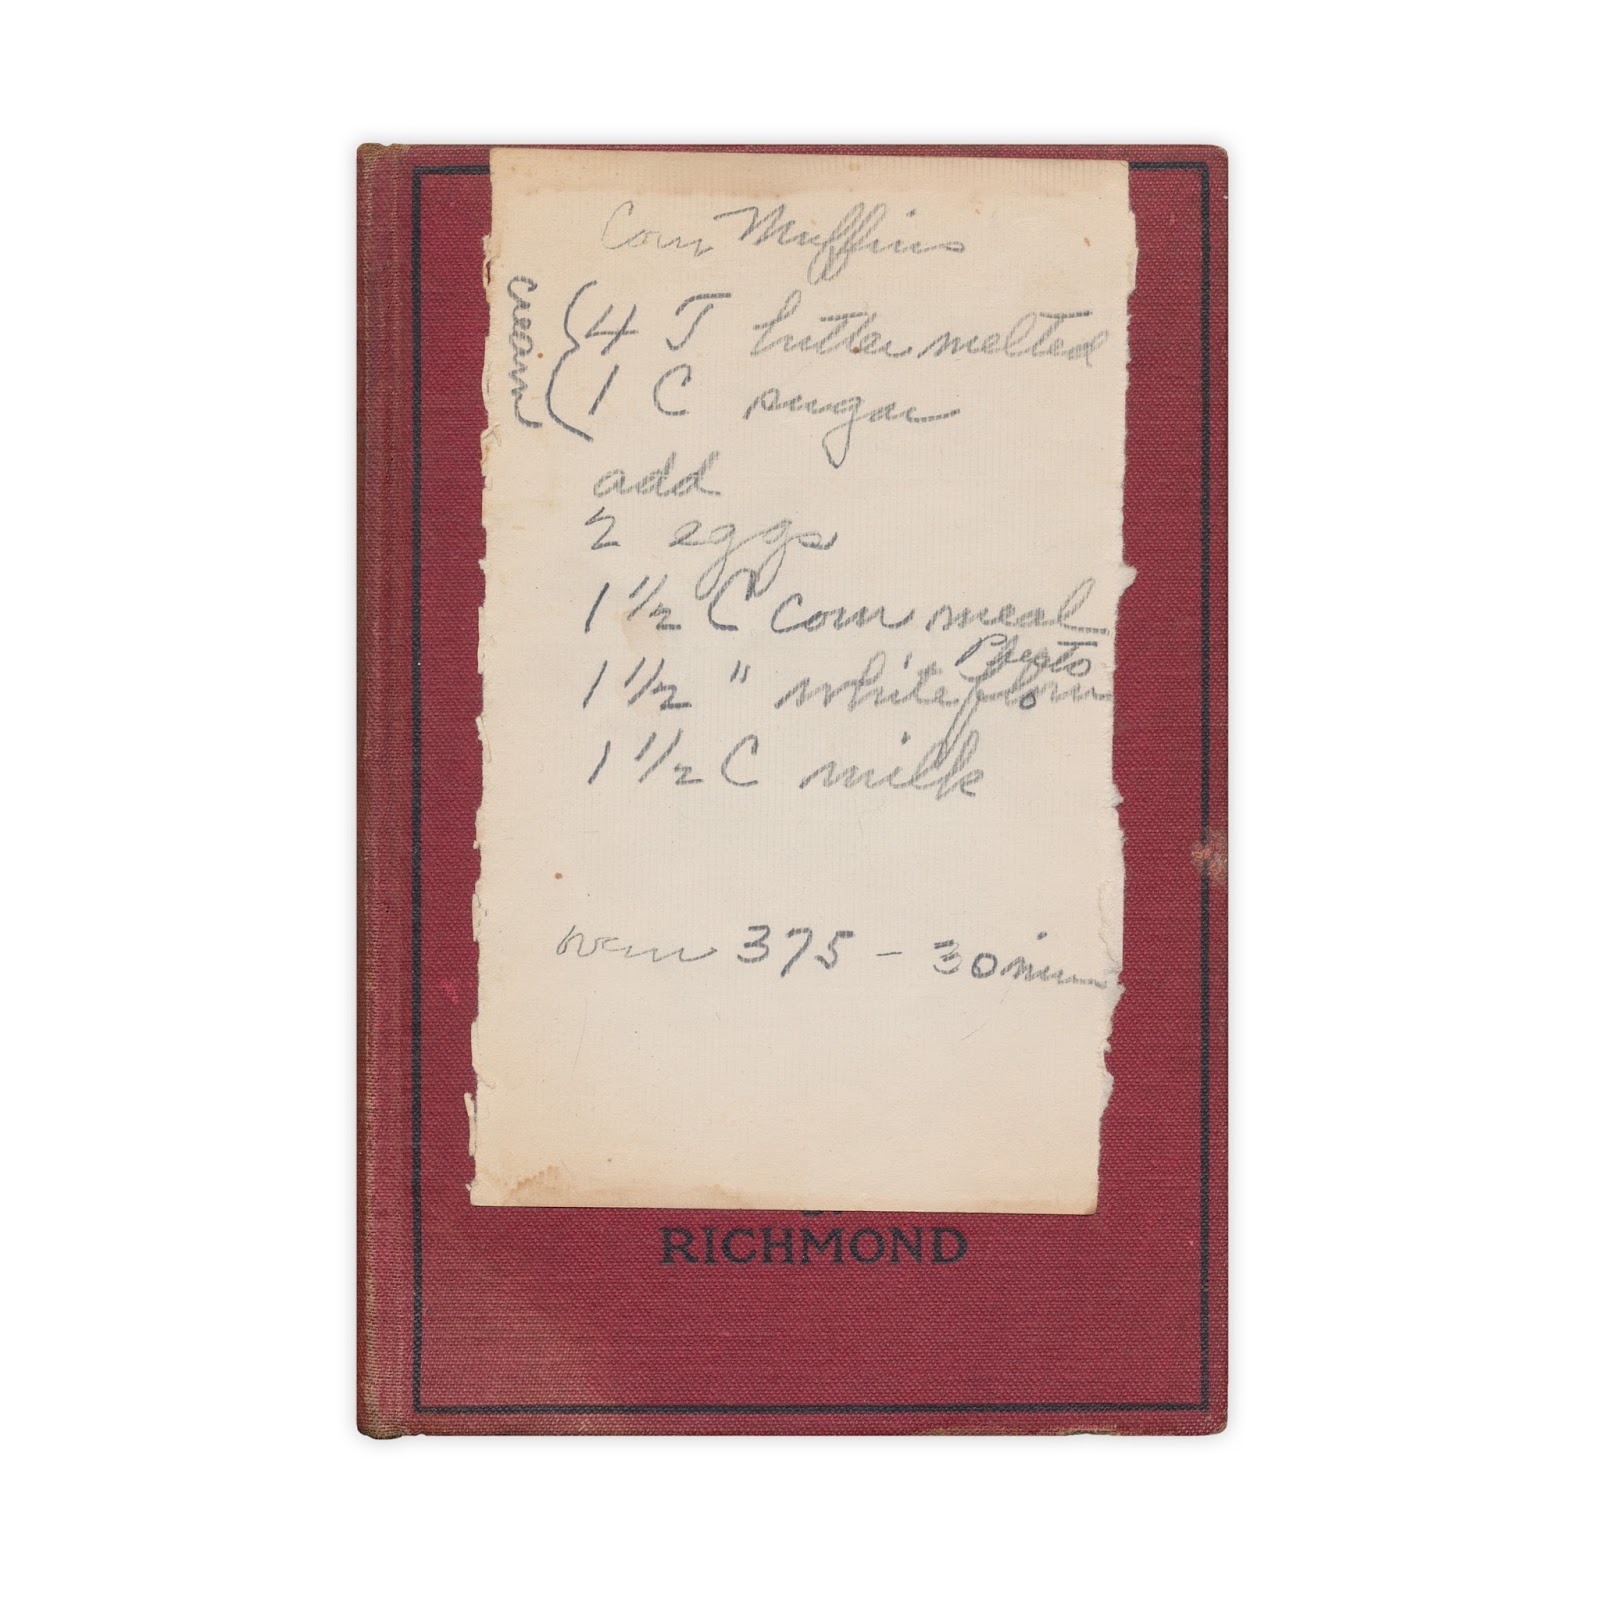 Corn Muffins
cream
4 T butter melted
1 C sugar
add
2 eggs
1 1/2 C corn meal
Presto
1 1/2 " white flour
1 1/2 C milk
oven 375 - 30 min
RICHMOND